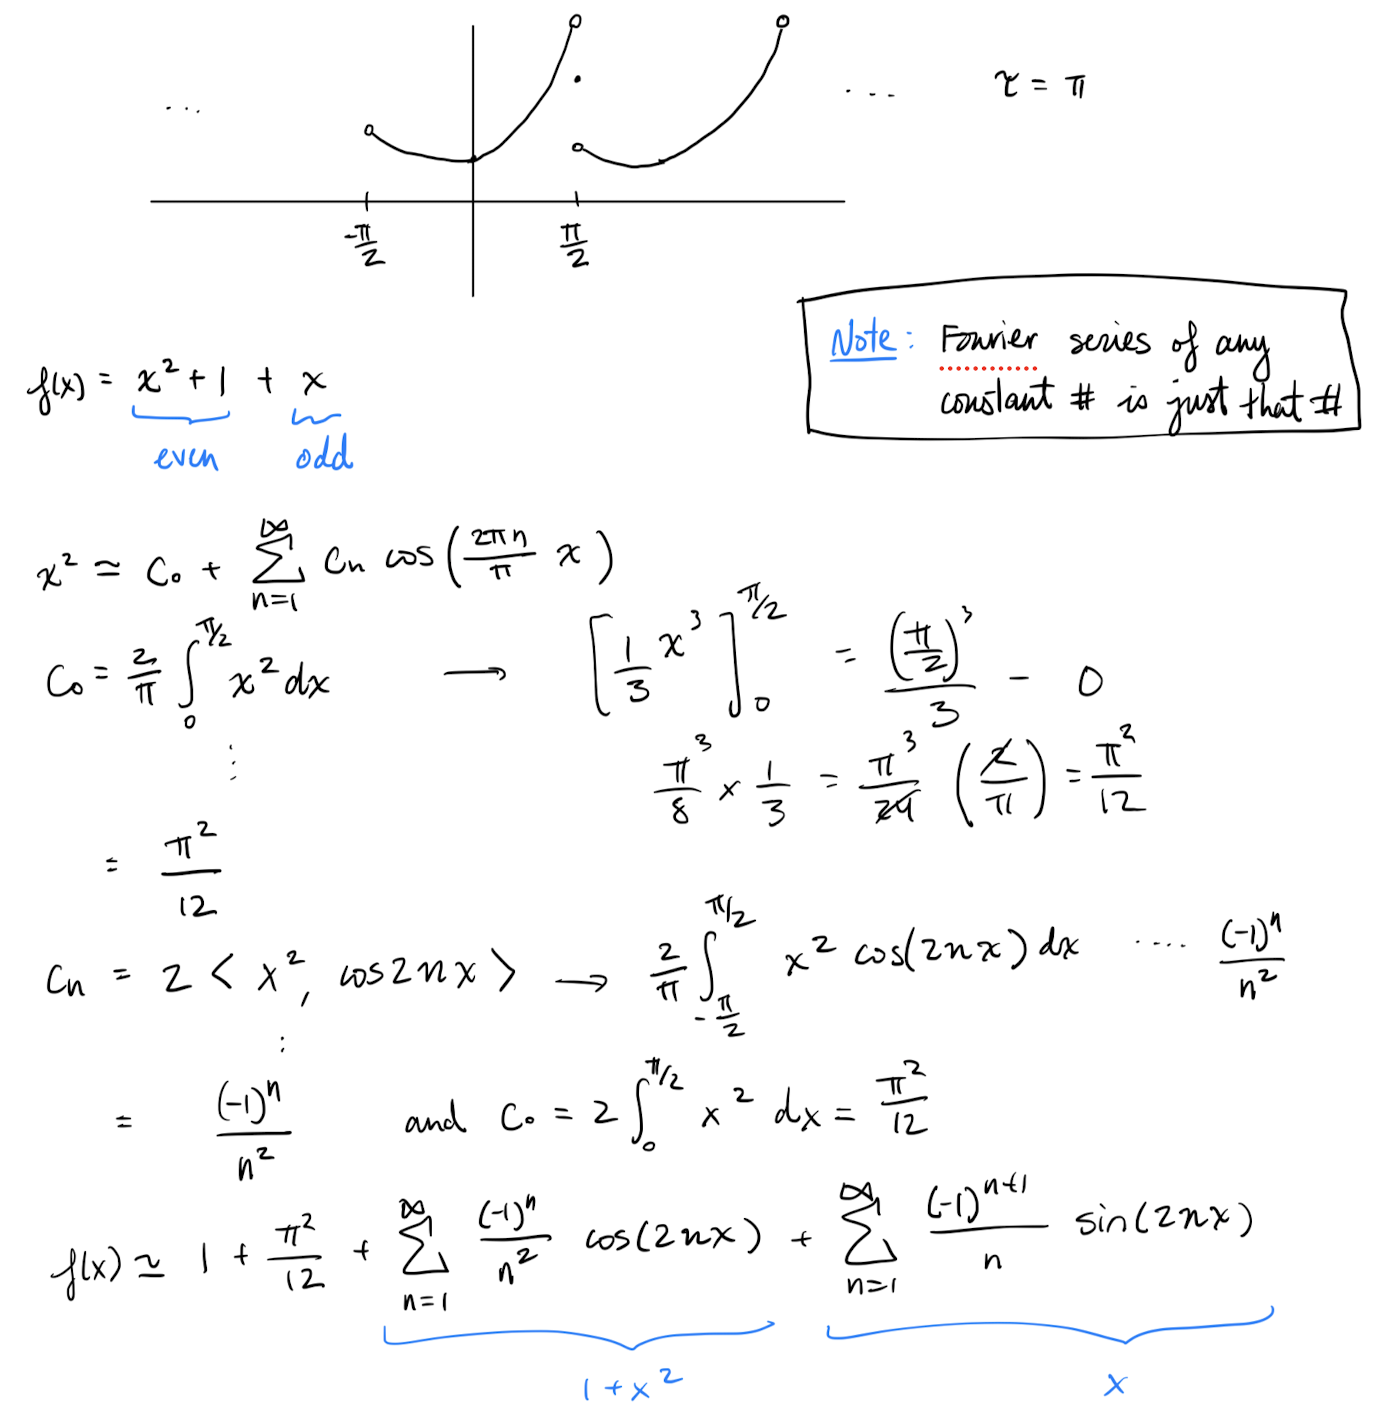 ... ... τ = π
-π/2 π/2
Note: Fourier series of any
constant # is just that #
f(x) = x² + 1 + x
even odd
x² ≃ C₀ + ∑_{n=1}^{∞} Cn cos(2πn/π x)
C₀ = 2/π ∫₀^{π/2} x² dx → [1/3 x³]₀^{π/2} = (π/2)³/3 - 0
⋮ π³/8 × 1/3 = π³/24 (2/π) = π²/12
= π²/12
Cn = 2 < x², cos2nx > → 2/π ∫_{-π/2}^{π/2} x² cos(2nx) dx .... (-1)ⁿ/n²
⋮
= (-1)ⁿ/n² and C₀ = 2 ∫₀^{π/2} x² dx = π²/12
f(x) ≃ 1 + π²/12 + ∑_{n=1}^{∞} (-1)ⁿ/n² cos(2nx) + ∑_{n=1}^{∞} (-1)^{n+1}/n sin(2nx)
1 + x² x